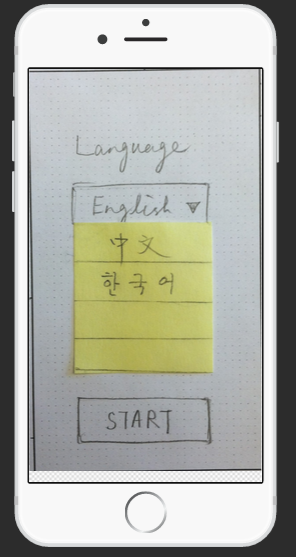 Language
English
中文
한국어
START